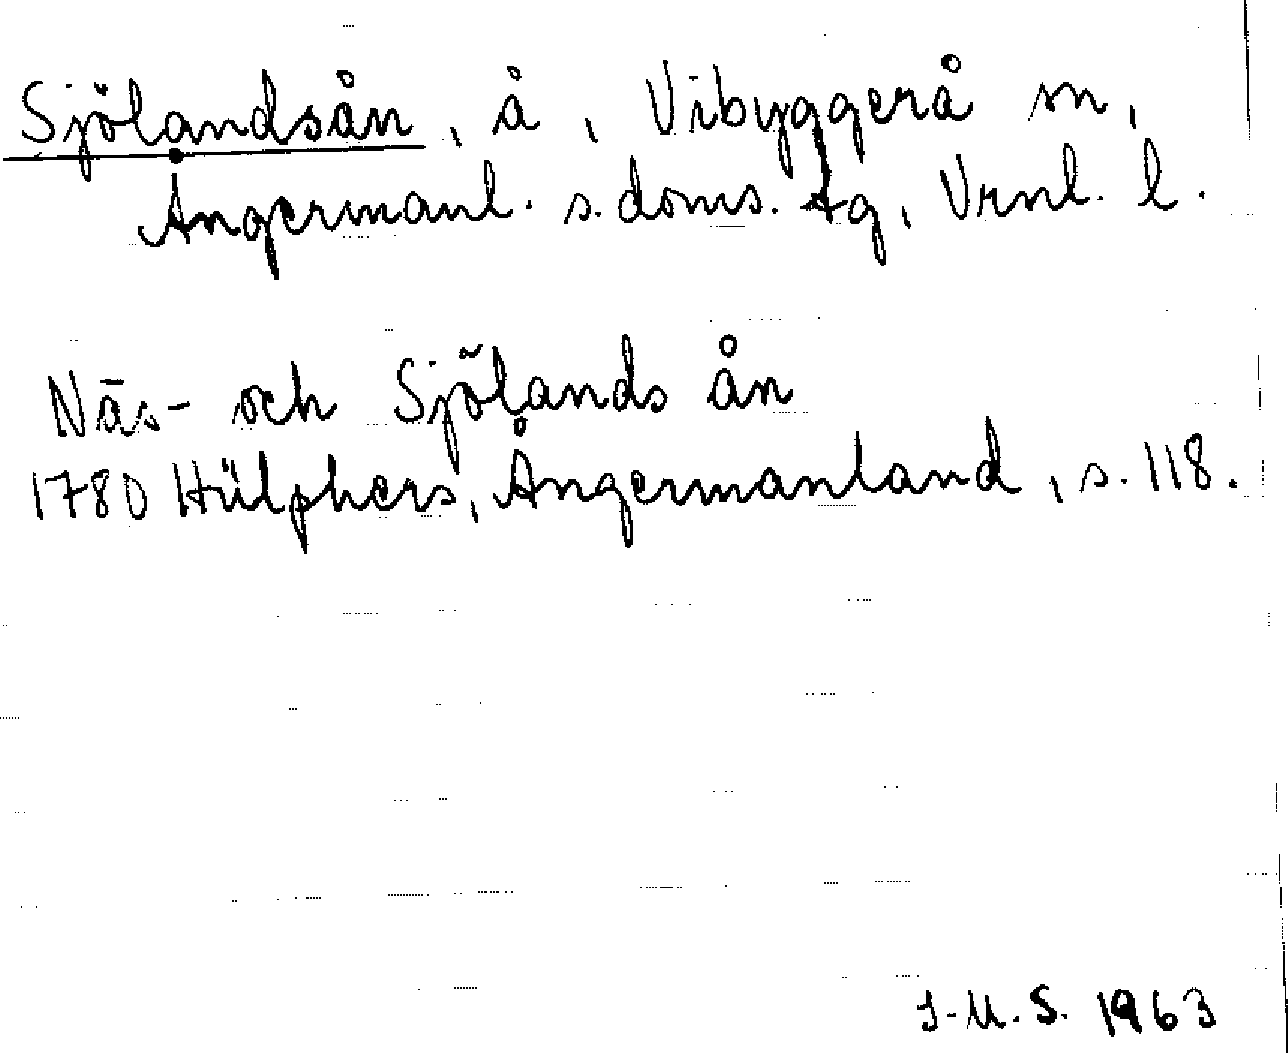 Sjölandsån, å, Vibyggerå sn,
Ångermanl. s. doms. tg, Vrnl. l.
Näs- och Sjölands ån
1780 Hülphers, Ångermanland, s. 118.
I-M. S. 1963